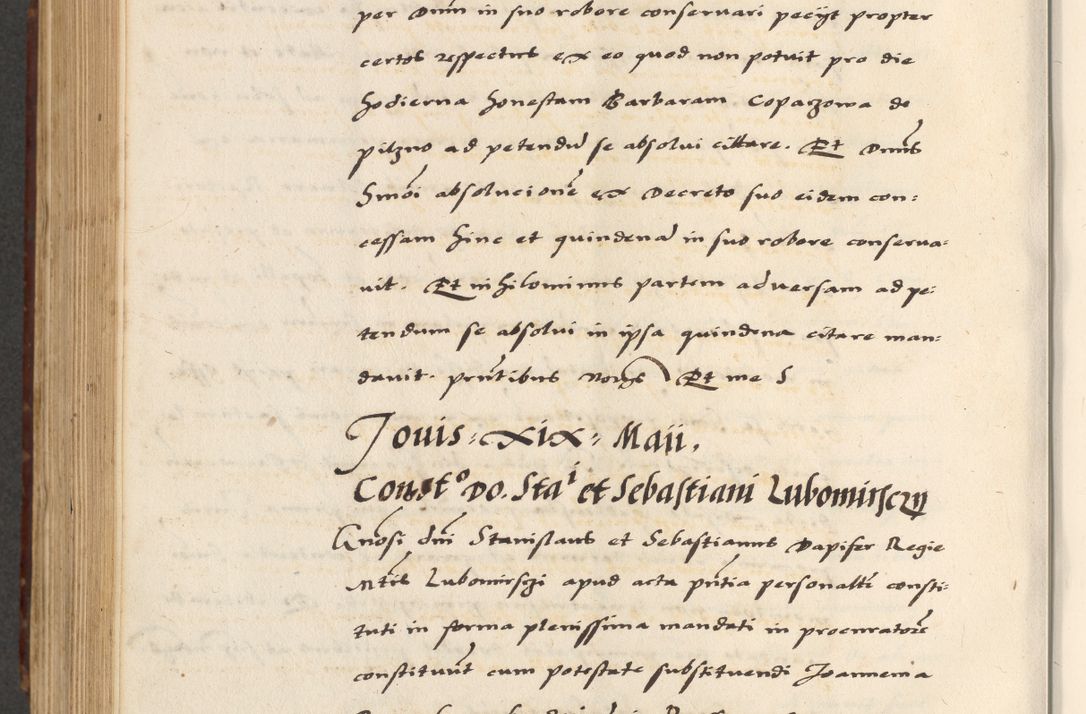 per Dnm in suo robore conservari pecyt propter
certos respectus ex eo quod non potuit pro die
hodierna honestam Barbaram Coparzowa de
pilzno ad petend se absolui cittare. Et Dnus
hmoi absolucione ex Decreto suo eidem con:
cessam hinc et quindena in suo robore conserua:
uit. Et nihilominus partem aduersam ad pe:
tendum se absolui in ipsa quindena citare man:
dauit. pntibus Et me
Jouis: xix: Maii.
Consto Do. Stai et Sebastiani Lubomirsczy
Gnosi dni Stanislaus et Sebastianus Dapifer Regie
Mtis Lubomirsczi apud acta pntia personalr consti:
tuti in forma plenissima mandati in procuratore
constituut cum potestate substituendi Joannem